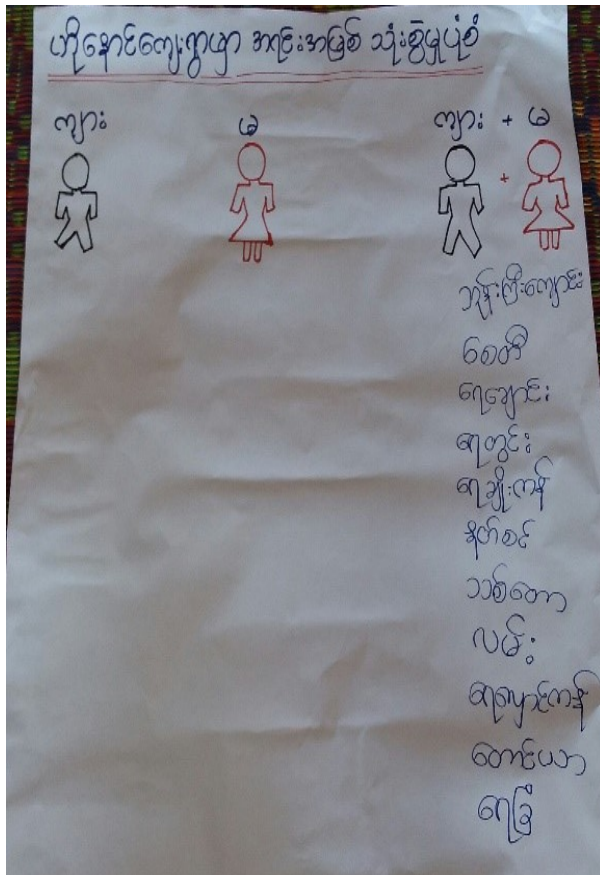 ဟိုနောင်ကျေးရွာမှာ အရင်းအမြစ် သုံးစွဲမှုပုံစံ
ကျား မ ကျား + မ
+
ဘုန်းကြီးကျောင်း
စေတီ
ရေချောင်း
ရေတွင်း
ရေချိုးကန်
နတ်စင်
သစ်တော
လမ်း
ရေလှောင်ကန်
တောင်ယာ
ရေခြံ